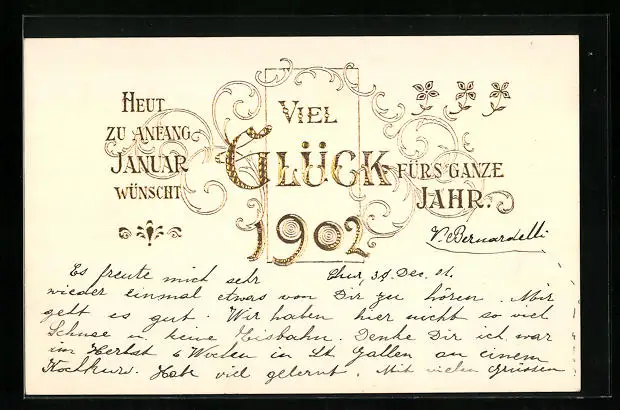 HEUT
ZU ANFANG
JANUAR
WÜNSCHT
VIEL
GLÜCK
FÜRS GANZE
JAHR.
1902
V. Bernardelli
Chur, 31. Dec. 01.
Es freute mich sehr
wieder einmal etwas von Dir zu hören. Mir
geht es gut. Wir haben hier nicht so viel
Schnee u. keine Eisbahn. Denke Dir ich war
im Herbst 6 Wochen in St. Gallen an einem
Kochkurs. Habe viel gelernt. Mit vielen Grüssen